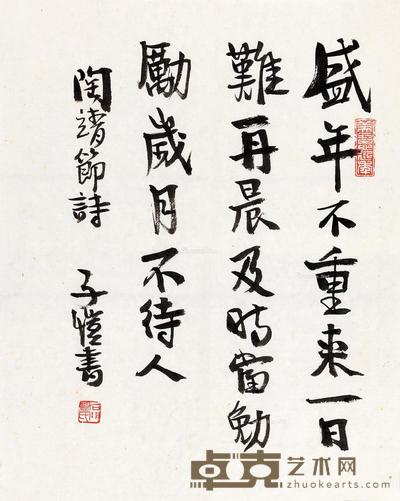 盛年不重来一日
難再晨及时當勉
勵歲月不待人
陶靖節詩 子愷書
卓克艺术网
zhuokearts.com